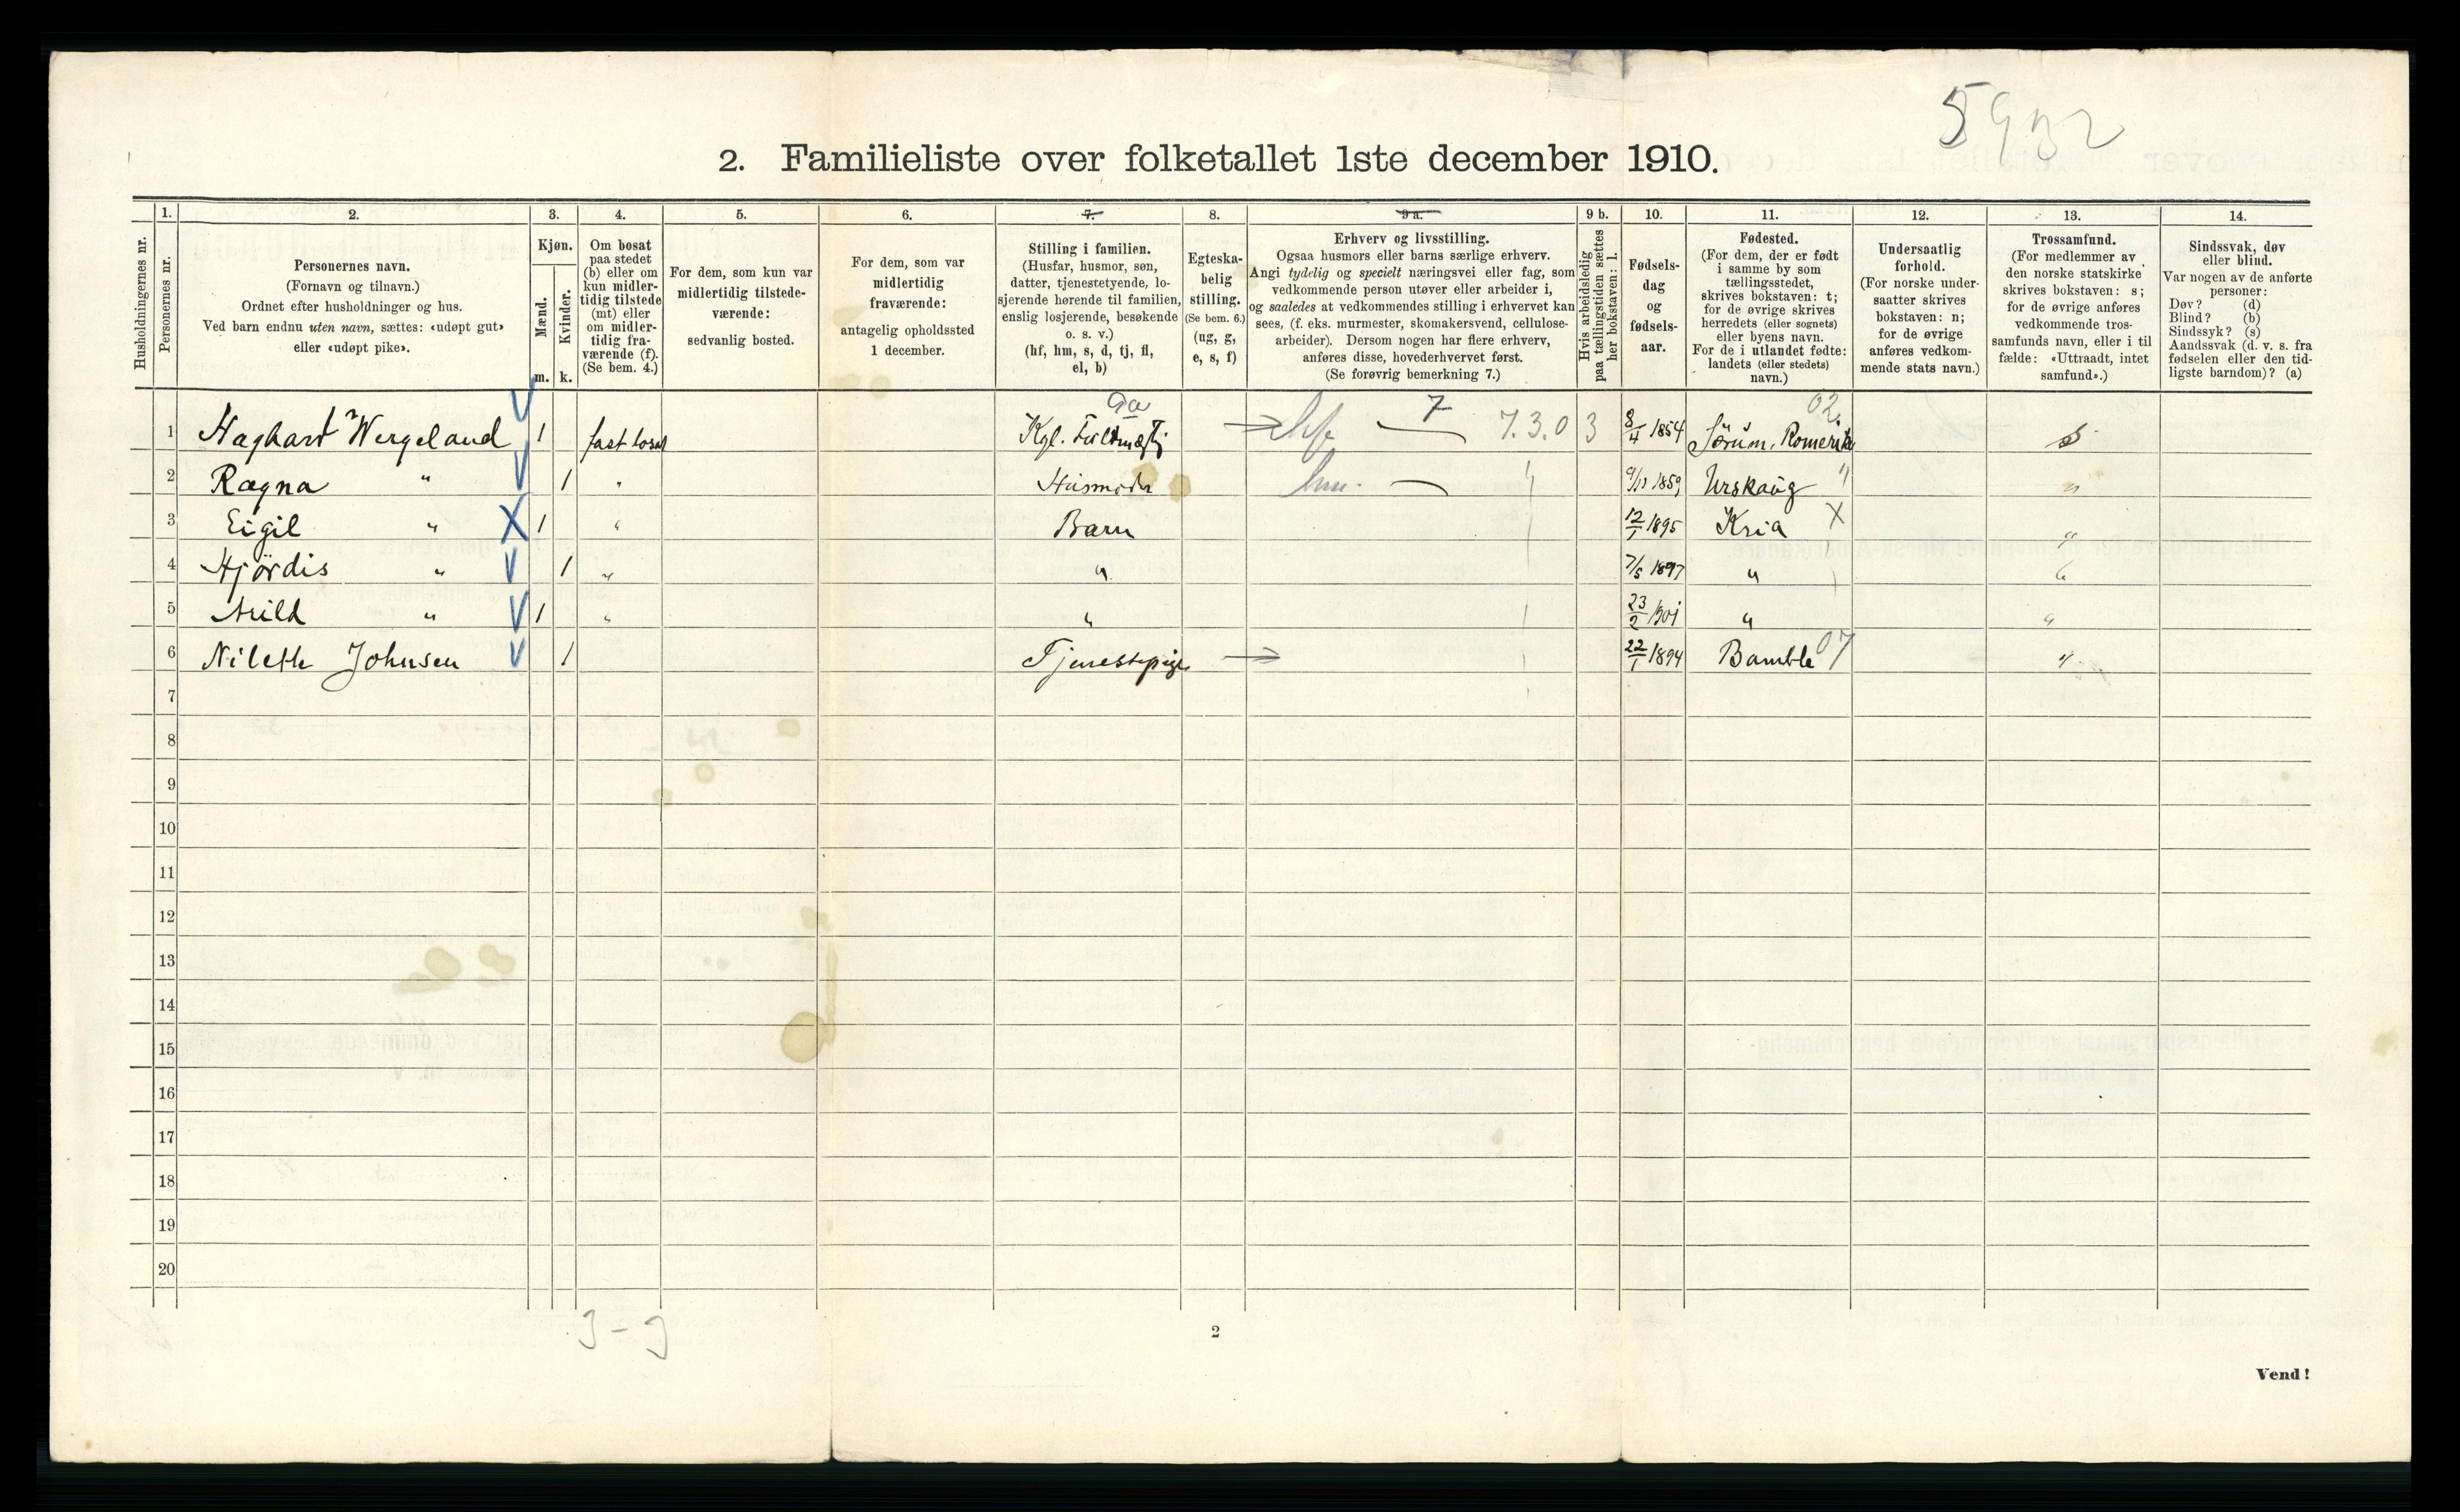 5932
2. Familieliste over folketallet 1ste december 1910.
1. 2. 3. 4. 5. 6. 7. 8. 9 a. 9 b. 10. 11. 12. 13. 14.
Husholdningernes nr.
Personernes nr.
Personernes navn.
(Fornavn og tilnavn.)
Ordnet efter husholdninger og hus.
Ved barn endnu uten navn, sættes: «udøpt gut»
eller «udøpt pike».
Kjøn.
Mænd.
Kvinder.
m. k.
Om bosat
paa stedet
(b) eller om
kun midler-
tidig tilstede
(mt) eller
om midler-
tidig fra-
værende (f).
(Se bem. 4.)
For dem, som kun var
midlertidig tilstede-
værende:
sedvanlig bosted.
For dem, som var
midlertidig
fraværende:
antagelig opholdssted
1 december.
Stilling i familien.
(Husfar, husmor, søn,
datter, tjenestetyende, lo-
sjerende hørende til familien,
enslig losjerende, besøkende
o. s. v.)
(hf, hm, s, d, tj, fl,
el, b)
Egteska-
belig
stilling.
(Se bem. 6.)
(ug, g,
e, s, f)
Erhverv og livsstilling.
Ogsaa husmors eller barns særlige erhverv.
Angi tydelig og specielt næringsvei eller fag, som
vedkommende person utøver eller arbeider i,
og saaledes at vedkommendes stilling i erhvervet kan
sees, (f. eks. murmester, skomakersvend, cellulose-
arbeider). Dersom nogen har flere erhverv,
anføres disse, hovederhvervet først.
(Se forøvrig bemerkning 7.)
Hvis arbeidsledig
paa tællingstiden sættes
her bokstaven: l.
Fødsels-
dag
og
fødsels-
aar.
Fødested.
(For dem, der er født
i samme by som
tællingsstedet,
skrives bokstaven: t;
for de øvrige skrives
herredets (eller sognets)
eller byens navn.
For de i utlandet fødte:
landets (eller stedets)
navn.)
Undersaatlig
forhold.
(For norske under-
saatter skrives
bokstaven: n;
for de øvrige
anføres vedkom-
mende stats navn.)
Trossamfund.
(For medlemmer av
den norske statskirke
skrives bokstaven: s;
for de øvrige anføres
vedkommende tros-
samfunds navn, eller i til
fælde: «Uttraadt, intet
samfund».)
Sindssvak, døv
eller blind.
Var nogen av de anførte
personer:
Døv? (d)
Blind? (b)
Sindssyk? (s)
Aandssvak (d. v. s. fra
fødselen eller den tid-
ligste barndom)? (a)
9a 7 02
1 Haghart Wergeland 1 fast bosat Kgl. Fuldmægtig 7.3.0 3 8/4 1854 Sørum, Romerike s
2 Ragna " 1 " Husmoder hm. 9/12 1859 Urskaug " "
3 Eigil " X 1 " Barn 12/1 1895 Kria X "
4 Hjördis " 1 " " 7/5 1897 " "
5 Arild " 1 " " 23/2 1901 " "
6 Nileth Johnsen 1 Tjenestepige 22/1 1894 Bamble 07 "
7
8
9
10
11
12
13
14
15
16
17
18
19
20
3 - 3
2
Vend!